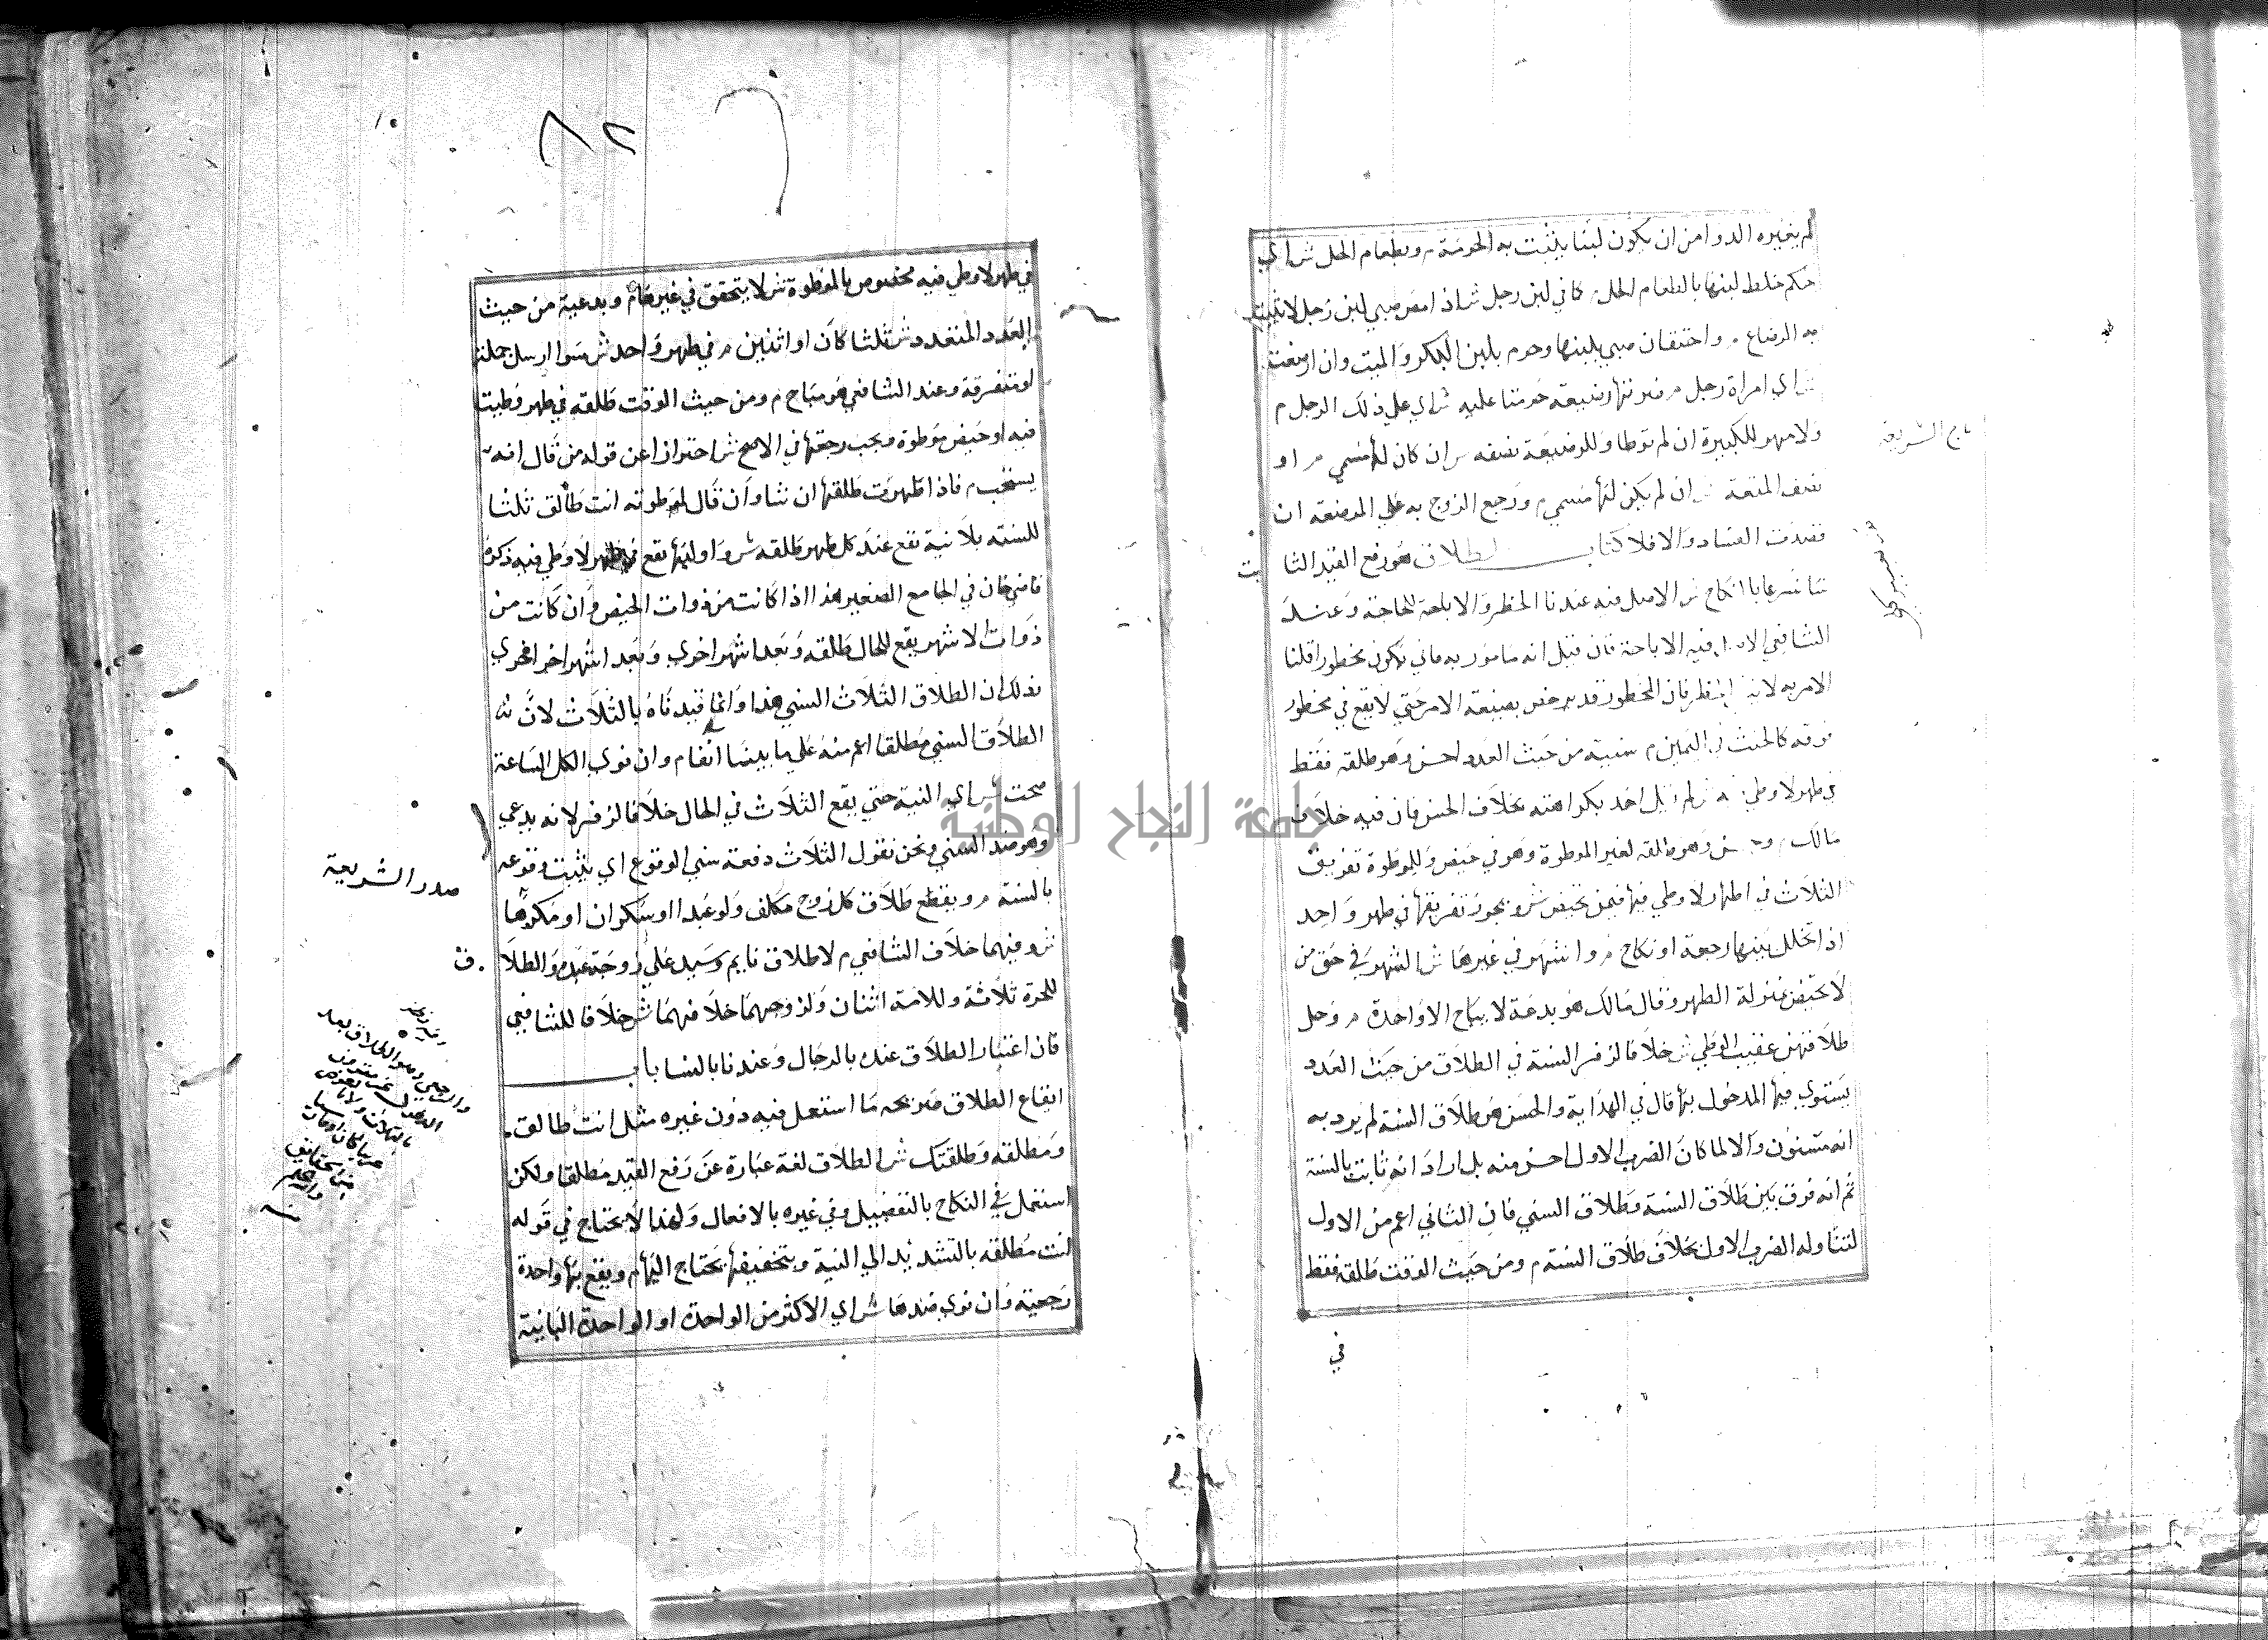 لم يغيره الدوا من ان يكون لبنا يثبت به الحرمة م وبطعام الحل ش اي
حكم خلط لبنها بالطعام الحل م كما في لبن رجل ش اذا مص صبي لبن رجل لا تثبت
به الرضاع م واحتقان صبي بلبنها وحرم بلبن البكر والميت وان ارضعت
ش اي امراة رجل م ضرتها رضيعة حرمتا عليه ش اي على ذلك الرجل م
ولا مهر للكبيرة ان لم توطا وللرضيعة نصفه ش ان كان لها مسمي م او
نصف المتعة ش ان لم يكن لها مسمي م ورجع الزوج به علي المرضعة ان
قصدت الفساد والا فلا كتاب الطلاق هو رفع القيد الثا
بت
تاج الشريعة
تا شرعا بالنكاح ش الاصل فيه عندنا الحظر والاباحة للحاجة وعند
الشافعي الاصل فيه الاباحة فان قيل انه مامور به فاني يكون محظورا قلنا
الامر به لا ينا الحظر فان المحظور قد يرخص بصيغة الامر حتي لا يقع في محظور
فوقه كالحنث في اليمين م سنية من حيث العدد احسن وهو طلقة فقط
في طهر لا وطي فيه ش لم يقل احد بكراهته بخلاف الحسن فان فيه خلاف
مالك م وحسن وهو طلقه لغير الموطوة وهو في حيض وللموطوة تفريق
الثلاث في اطهار لا وطي فيها فيمن تحيض ش ويجوز تفريقها في طهر واحد
اذا تخلل بينهما رجعة او نكاح م واشهر في غيرها ش الشهر في حق من
لا تحيض بمنزلة الطهر وقال مالك هو بدعة لا يباح الا واحدة م وحل
طلاقهن عقيب الوطي ش خلافا لزفر السنة في الطلاق من حيث العدد
يستوي فيها المدخول بها قال في الهداية والحسن هو طلاق السنة لم يرد به
انه مسنون والا لما كان الضرب الاول احسن منه بل اراد انه ثابت بالسنة
ثم انه فرق بين طلاق السنة وطلاق السني فان الثاني اعم من الاول
لتناوله الضرب الاول بخلاف طلاق السنة م ومن حيث الوقت طلقة فقط
في
٨٢
في طهر لا وطي فيه مخصوص بالموطوة ش لا يتحقق في غيرها م وبدعية من حيث
العدد المتعدد ش ثلثا كان او اثنين م في طهر واحد ش سوا ارسل جملة
او متفرقة وعند الشافعي هو مباح م ومن حيث الوقت طلقه في طهر وطيت
فيه او حيض موطوة ويجب رجعتها في الاصح ش احترازا عن قول من قال انه
يستحب م فاذا طهرت طلقها ان شا وان قال لموطوته انت طالق ثلثا
للسنة بلا نية تقع عند كل طهر طلقه ش واولها يقع في طهر لا وطي فيه ذكره
قاضي خان في الجامع الصغير هذا اذا كانت من ذوات الحيض وان كانت من
ذوات الاشهر يقع للحال طلقه وبعد اشهر اخري وبعد اشهر اخر اخري
فذلك ان الطلاق الثلاث السني هذا وانما قيدناه بالثلاث لان
الطلاق السني مطلقا اعم منه علي ما بينا انفا م وان نوي الكل الساعة
صحت ش اي النية حتي يقع الثلاث في الحال خلافا لزفر لانه بدعي
وهو ضد السني ونحن نقول الثلاث دفعة سني الوقوع اي يثبت وقوعه
بالسنة م ويقطع طلاق كل زوج مكلف ولو عبدا او سكران او مكرها
صدر الشريعة
ش وفيهما خلاف الشافعي م لا طلاق نايم وسيد علي زوجة عبده والطلا
ق
للحرة ثلاثة وللامة اثنان ولزوجهما خلافهما ش خلافا للشافعي
فان اعتبار الطلاق عنده بالرجال وعندنا بالنسا باب
ايقاع الطلاق صريحه ما استعمل فيه دون غيره مثل انت طالق
ومطلقه وطلقتك ش الطلاق لغة عبارة عن رفع القيد مطلقا ولكن
استعمل في النكاح بالتفعيل وفي غيره بالافعال ولهذا لا يحتاج في قوله
انت مطلقه بالتشديد الي النية وبتخفيفها يحتاج اليها م ويقع بها واحدة
رجعية وان نوي ضدها ش اي الاكثر من الواحدة او الواحدة البانية
جامعة النجاح الوطنية